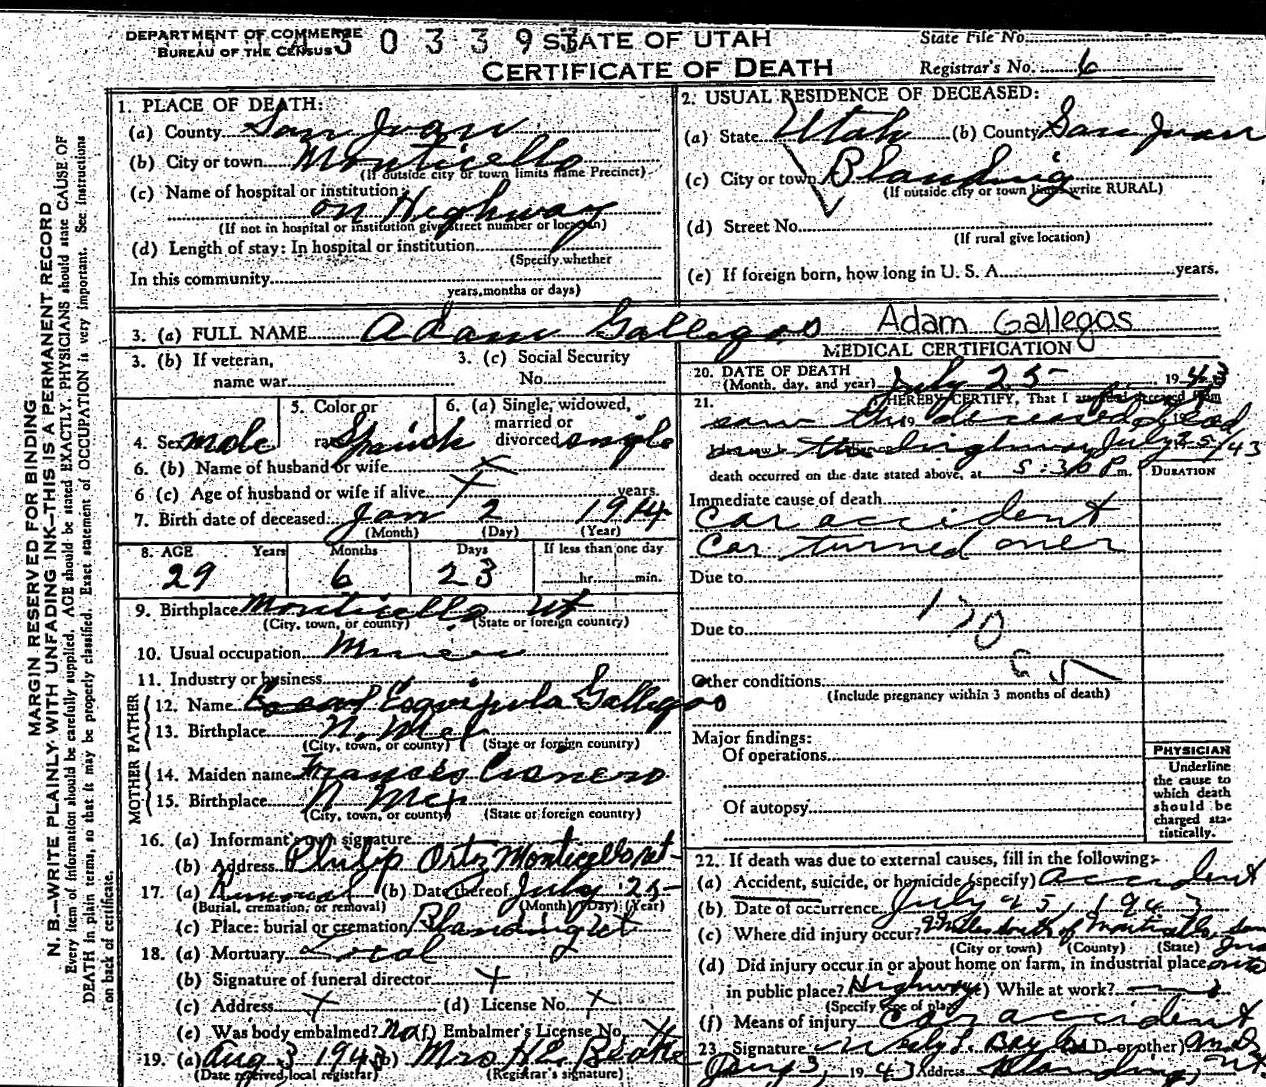 DEPARTMENT OF COMMERCE
BUREAU OF THE CENSUS
STATE OF UTAH
CERTIFICATE OF DEATH
State File No.
Registrar's No. 6
MARGIN RESERVED FOR BINDING
N. B.—WRITE PLAINLY WITH UNFADING INK—THIS IS A PERMANENT RECORD
Every item of information should be carefully supplied. AGE should be stated EXACTLY. PHYSICIANS should state CAUSE OF
DEATH in plain terms, so that it may be properly classified. Exact statement of OCCUPATION is very important. See instructions
on back of certificate.
1. PLACE OF DEATH:
(a) County San Juan
(b) City or town Monticello
(If outside city or town limits name Precinct)
(c) Name of hospital or institution:
on Highway
(If not in hospital or institution give street number or location)
(d) Length of stay: In hospital or institution
(Specify whether
In this community
years, months or days)
2. USUAL RESIDENCE OF DECEASED:
(a) State Utah (b) County San Juan
(c) City or town Blanding
(If outside city or town limits write RURAL)
(d) Street No.
(If rural give location)
(e) If foreign born, how long in U. S. A. years.
3. (a) FULL NAME Adam Gallegos Adam Gallegos
3. (b) If veteran,
name war
3. (c) Social Security
No.
4. Sex male
5. Color or
race Spanish
6. (a) Single, widowed,
married or
divorced single
6. (b) Name of husband or wife x
6 (c) Age of husband or wife if alive x years.
7. Birth date of deceased Jan 2 1914
(Month) (Day) (Year)
8. AGE Years Months Days If less than one day
29 6 23 hr. min.
9. Birthplace Monticello Ut
(City, town, or county) (State or foreign country)
10. Usual occupation
11. Industry or business
MOTHER FATHER
12. Name Esquipula Gallegos
13. Birthplace N. Mex
(City, town, or county) (State or foreign country)
14. Maiden name Frances
15. Birthplace N Mex
(City, town, or county) (State or foreign country)
16. (a) Informant's own signature
(b) Address Philip Ortz Monticello Ut
17. (a) Removal (b) Date thereof July 25
(Burial, cremation, or removal) (Month) (Day) (Year)
(c) Place: burial or cremation Blanding Ut
18. (a) Mortuary Local
(b) Signature of funeral director x
(c) Address x (d) License No. x
(e) Was body embalmed? No (f) Embalmer's License No. x
19. (a) Aug 3 1943 (b) Mrs H E
(Date received local registrar) (Registrar's signature)
MEDICAL CERTIFICATION
20. DATE OF DEATH
(Month, day, and year) July 25 1943
21. I HEREBY CERTIFY, That I
saw the deceased dead
highway July 25/43
death occurred on the date stated above, at 5:30 P m. DURATION
Immediate cause of death
Car accident
Car turned over
Due to
170
Due to
Other conditions
(Include pregnancy within 3 months of death)
Major findings:
Of operations
Of autopsy
PHYSICIAN
Underline
the cause to
which death
should be
charged sta-
tistically.
22. If death was due to external causes, fill in the following:
(a) Accident, suicide, or homicide (specify) Accident
(b) Date of occurrence July 25, 1943
(c) Where did injury occur? of Monticello
(City or town) (County) (State)
(d) Did injury occur in or about home on farm, in industrial place
in public place? Highway (e) While at work?
(Specify type of place)
(f) Means of injury Car accident
23. Signature (M.D. or other)
19 43 Address Blanding Ut.